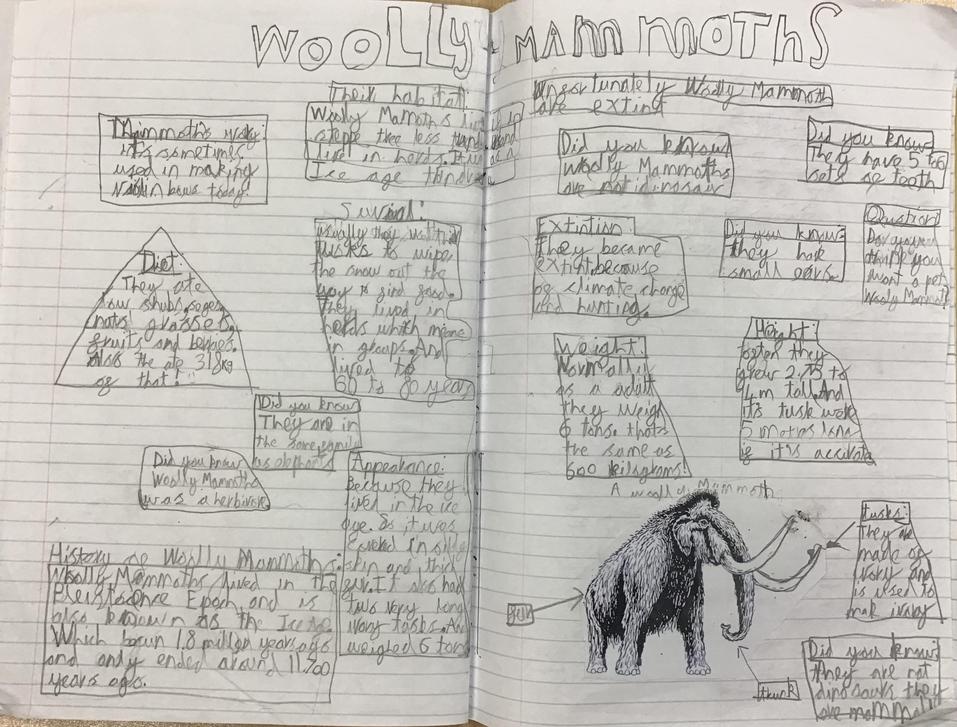 WOOLLY MAMMOTHS
Their habitat:
Woolly Mamoths live in
steppe
lived in herds.
Ice age
Mammoths
it's sometimes
used in making
bows today!
Diet:
They ate
grasses,
fruits and berries.
also the ate 318kg
of that!
Survival:
usually they
tusks to wipe
the snow out the
way to find food.
They lived in
herds which means
in groups. And
lived to
60 to 80 years
Did you know
They are in
the same family
as elephants
Did you know
Woolly Mammoths
was a herbivore
Appearance:
Because they
lived in the ice
age. So it was
skin and thick
fur. It also had
two very long
ivory tusks. And
weighed 6 tons
History of Woolly Mammoths:
Woolly Mammoths lived in the
Epoch and is
also known as the Ice
Which begun 1.8 million years ago
and only ended around 11700
years ago.
Unfortunately Woolly Mammoth
are extinct
Did you know
Woolly Mammoths
are not dinosaur
Did you know
They have 5 to 6
sets of teeth
Extintion:
They became
because
of climate change
and hunting.
Did you know
they have
small ears.
Question
you
want a pet
Woolly
Weight:
Normally
as a adult
they weigh
6 tons. thats
the same as
600 kilograms!
Height:
they
grew 2.75 to
4m tall. And
it's tusk
5
if it's accurate
A woolly Mammoth
tusks:
They are
made of
ivory and
is used to
mak ivary
fur
trunk
Did you know
they are not
dinosaurs they
are